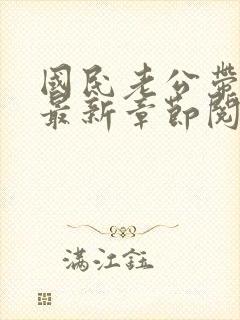 國民老公帶
最新章節閱
滿江鈺